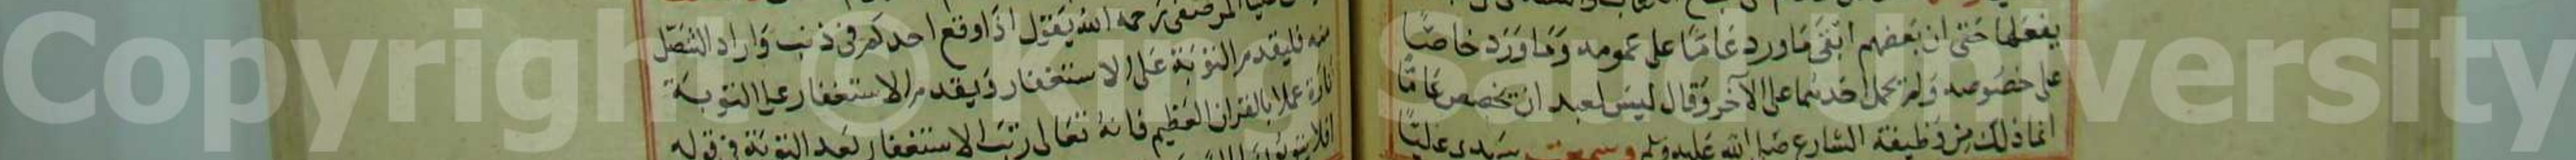 يفعلها حتى ان بعضهم ابقى ماورد عاما على عمومه وماورد خاصا
على خصوصه ولم يحمل احدهما على الآخر وقال ليس لعبد ان يخصص عاما
انما ذلك من وظيفة الشارع صلى الله عليه وسلم وسمعت سيدي عليا
المرصفى رحمه الله يقول اذا وقع احدكم في ذنب واراد التنصل
منه فليقدم التوبة على الاستغفار ويقدم الاستغفار على التوبة
تارة عملا بالقران العظيم فانه تعالى رتب الاستغفار بعد التوبة في قوله
افلا يتوبون
Copyright © King Saud University